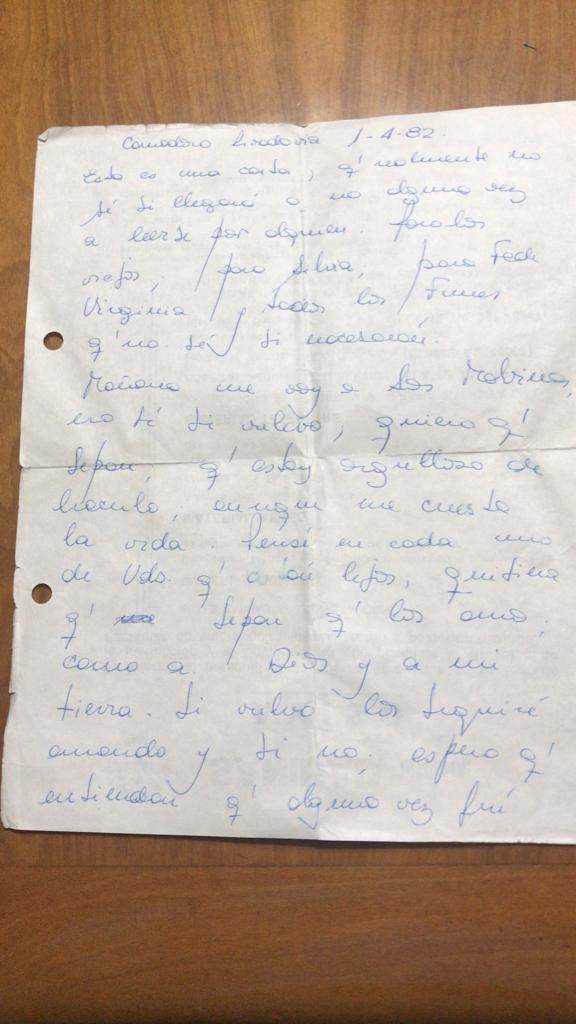 Comodoro Rivadavia 1-4-82.
Esta es una carta, q' realmente no
sé si llegará o no alguna vez
a leerse por alguien. Para los
viejos, para Silvia, para Fede
Virginia y todos los Funes
q' no sé si nacerán.
Mañana me voy a las Malvinas,
no sé si vuelvo, quiero q'
sepan, q' estoy orgulloso de
hacerlo, aunque me cueste
la vida. Pensé en cada uno
de Uds. q' están lejos, quisiera
q' sepan q' los amo,
como a Dios y a mi
tierra. Si vuelvo los seguiré
amando y si no, espero q'
entiendan q' alguna vez fui